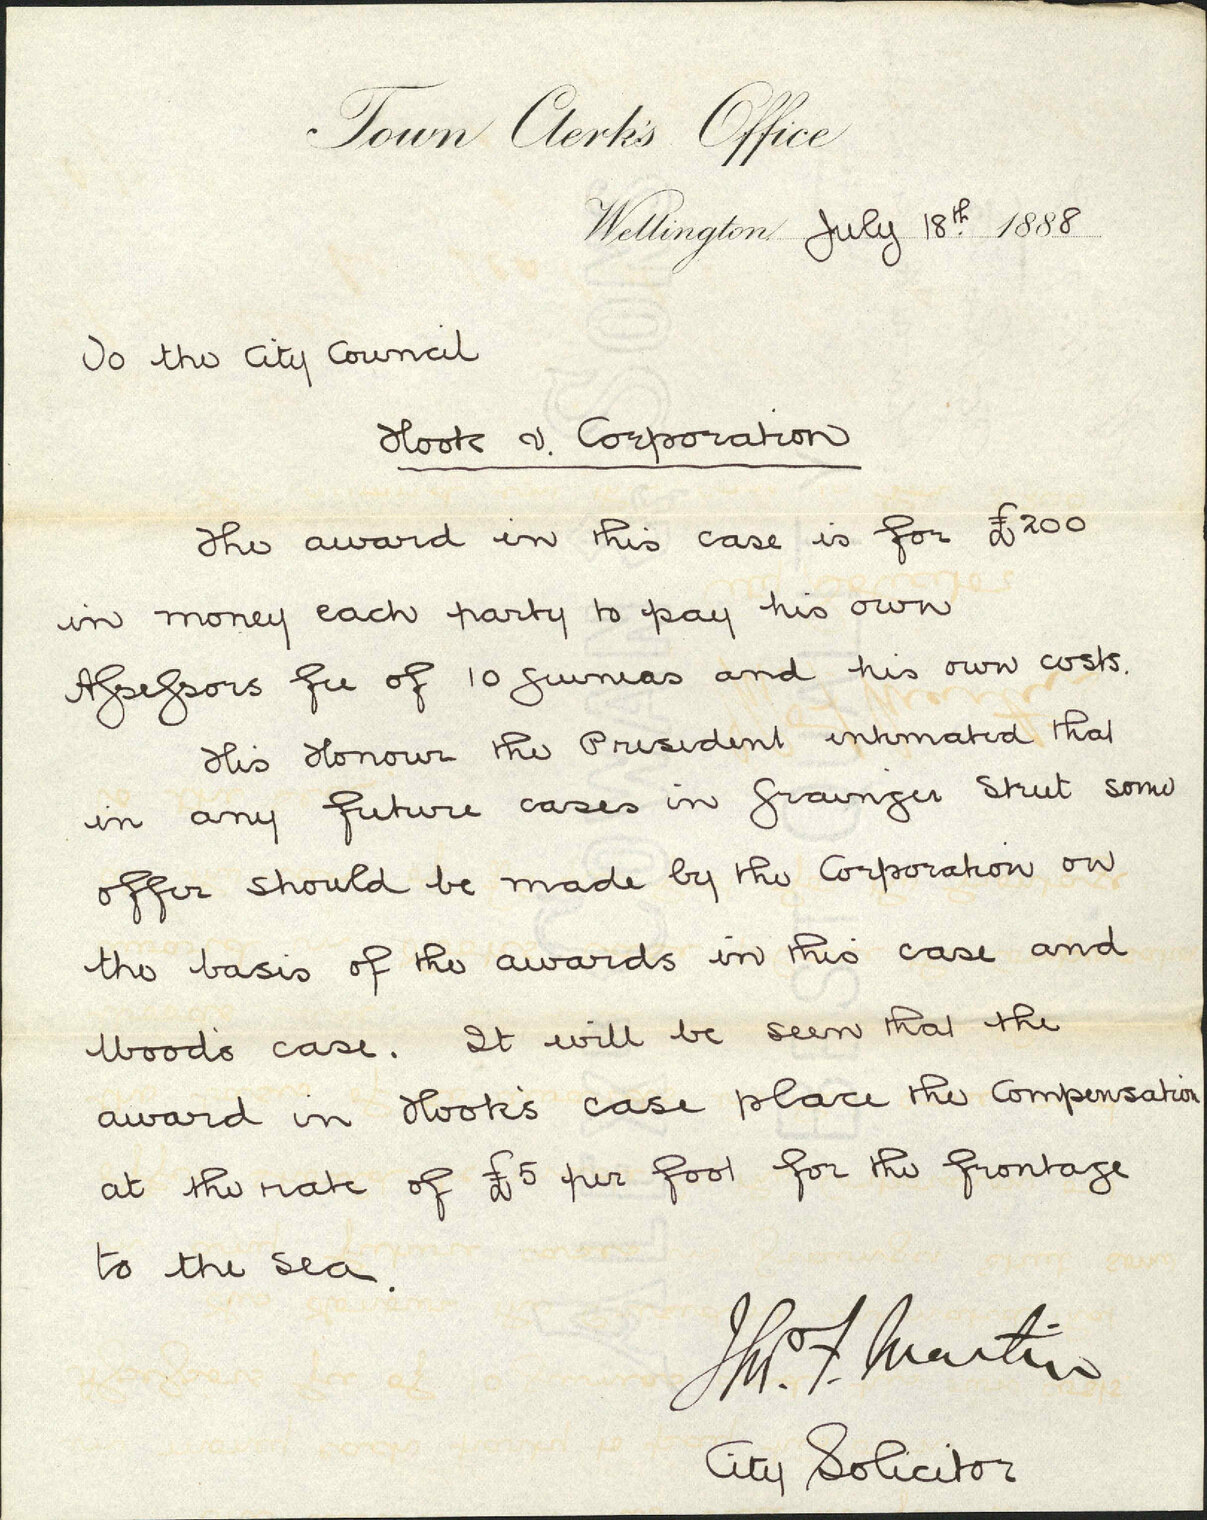 Town Clerk's Office
Wellington July 18th 1888
To the City Council
Hook v. Corporation
The award in this case is for £200
in money each party to pay his own
Assessors fee of 10 guineas and his own costs.
His Honour the President intimated that
in any future cases in Grainger Street some
offer should be made by the Corporation on
the basis of the awards in this case and
Wood's case. It will be seen that the
award in Hook's case place the Compensation
at the rate of £5 per foot for the frontage
to the sea.
Thos. F. Martin
City Solicitor